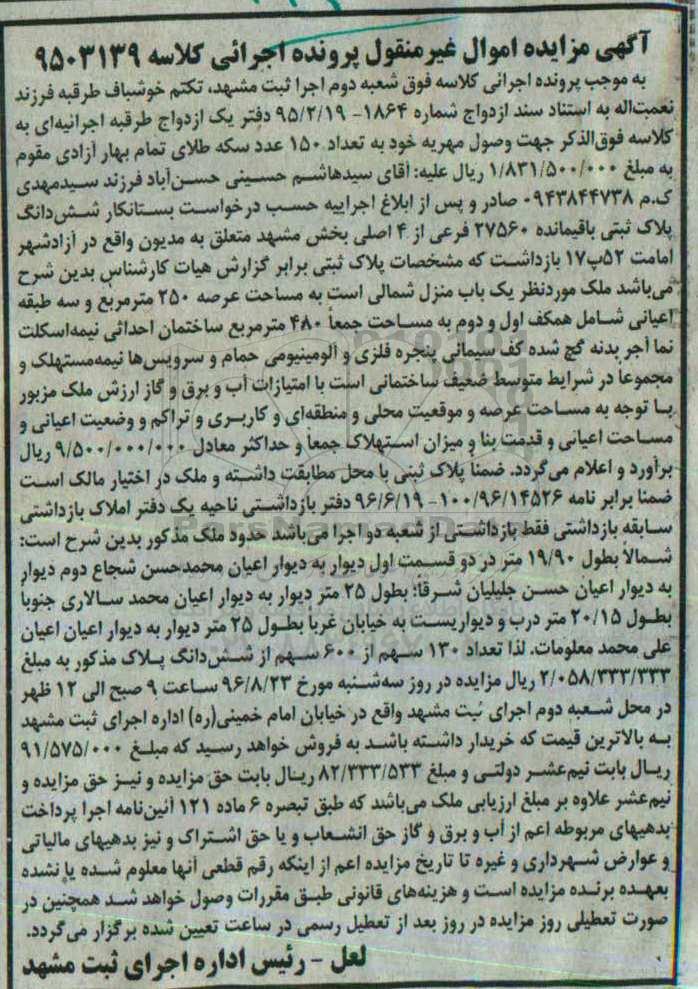 آگهی مزایده اموال غیرمنقول پرونده اجرائی کلاسه ۹۵۰۳۱۳۹
به موجب پرونده اجرائی کلاسه فوق شعبه دوم اجرا ثبت مشهد، تکتم خوشباف طرقبه فرزند
نعمت‌اله به استناد سند ازدواج شماره ۱۸۶۴- ۹۵/۲/۱۹ دفتر یک ازدواج طرقبه اجرائیه‌ای به
کلاسه فوق‌الذکر جهت وصول مهریه خود به تعداد ۱۵۰ عدد سکه طلای تمام بهار آزادی مقوم
به مبلغ ۱/۸۳۱/۵۰۰/۰۰۰ ریال علیه: آقای سیدهاشم حسینی حسن‌آباد فرزند سیدمهدی
ک.م ۰۹۴۳۸۴۴۷۳۸ صادر و پس از ابلاغ اجراییه حسب درخواست بستانکار شش‌دانگ
پلاک ثبتی باقیمانده ۲۷۵۶۰ فرعی از ۴ اصلی بخش مشهد متعلق به مدیون واقع در آزادشهر
امامت ۵۲پ۱۷ بازداشت که مشخصات پلاک ثبتی برابر گزارش هیات کارشناس بدین شرح
می‌باشد ملک موردنظر یک باب منزل شمالی است به مساحت عرصه ۲۵۰ مترمربع و سه طبقه
اعیانی شامل همکف اول و دوم به مساحت جمعاً ۴۸۰ مترمربع ساختمان احداثی نیمه‌اسکلت
نما آجر بدنه گچ شده کف سیمانی پنجره فلزی و آلومینیومی حمام و سرویس‌ها نیمه‌مستهلک و
مجموعاً در شرایط متوسط ضعیف ساختمانی است با امتیازات آب و برق و گاز ارزش ملک مزبور
با توجه به مساحت عرصه و موقعیت محلی و منطقه‌ای و کاربری و تراکم و وضعیت اعیانی و
مساحت اعیانی و قدمت بنا و میزان استهلاک جمعاً و حداکثر معادل ۹/۵۰۰/۰۰۰/۰۰۰ ریال
برآورد و اعلام می‌گردد. ضمناً پلاک ثبتی با محل مطابقت داشته و ملک در اختیار مالک است
ضمنا برابر نامه ۱۰۰/۹۶/۱۴۵۲۶- ۹۶/۶/۱۹ دفتر بازداشتی ناحیه یک دفتر املاک بازداشتی
سابقه بازداشتی فقط بازداشتی از شعبه دو اجرا می‌باشد حدود ملک مذکور بدین شرح است:
شمالاً بطول ۱۹/۹۰ متر در دو قسمت اول دیوار به دیوار اعیان محمدحسن شجاع دوم دیوار
به دیوار اعیان حسن جلیلیان شرقاً: بطول ۲۵ متر دیوار به دیوار اعیان محمد سالاری جنوباً
بطول ۲۰/۱۵ متر درب و دیواریست به خیابان غرباً بطول ۲۵ متر دیوار به دیوار اعیان اعیان
علی محمد معلومات. لذا تعداد ۱۳۰ سهم از ۶۰۰ سهم از شش‌دانگ پلاک مذکور به مبلغ
۲/۰۵۸/۳۳۳/۳۳۳ ریال مزایده در روز سه‌شنبه مورخ ۹۶/۸/۲۳ ساعت ۹ صبح الی ۱۲ ظهر
در محل شعبه دوم اجرای ثبت مشهد واقع در خیابان امام خمینی(ره) اداره اجرای ثبت مشهد
به بالاترین قیمت که خریدار داشته باشد به فروش خواهد رسید که مبلغ ۹۱/۵۷۵/۰۰۰
ریال بابت نیم‌عشر دولتی و مبلغ ۸۲/۳۳۳/۵۳۳ ریال بابت حق مزایده و نیز حق مزایده و
نیم‌عشر علاوه بر مبلغ ارزیابی ملک می‌باشند که طبق تبصره ۶ ماده ۱۲۱ آئین‌نامه اجرا پرداخت
بدهیهای مربوطه اعم از آب و برق و گاز حق انشعاب و یا حق اشتراک و نیز بدهیهای مالیاتی
و عوارض شهرداری و غیره تا تاریخ مزایده اعم از اینکه رقم قطعی آنها معلوم شده یا نشده
بعهده برنده مزایده است و هزینه‌های قانونی طبق مقررات وصول خواهد شد همچنین در
صورت تعطیلی روز مزایده در روز بعد از تعطیل رسمی در ساعت تعیین شده برگزار می‌گردد.
لعل - رئیس اداره اجرای ثبت مشهد